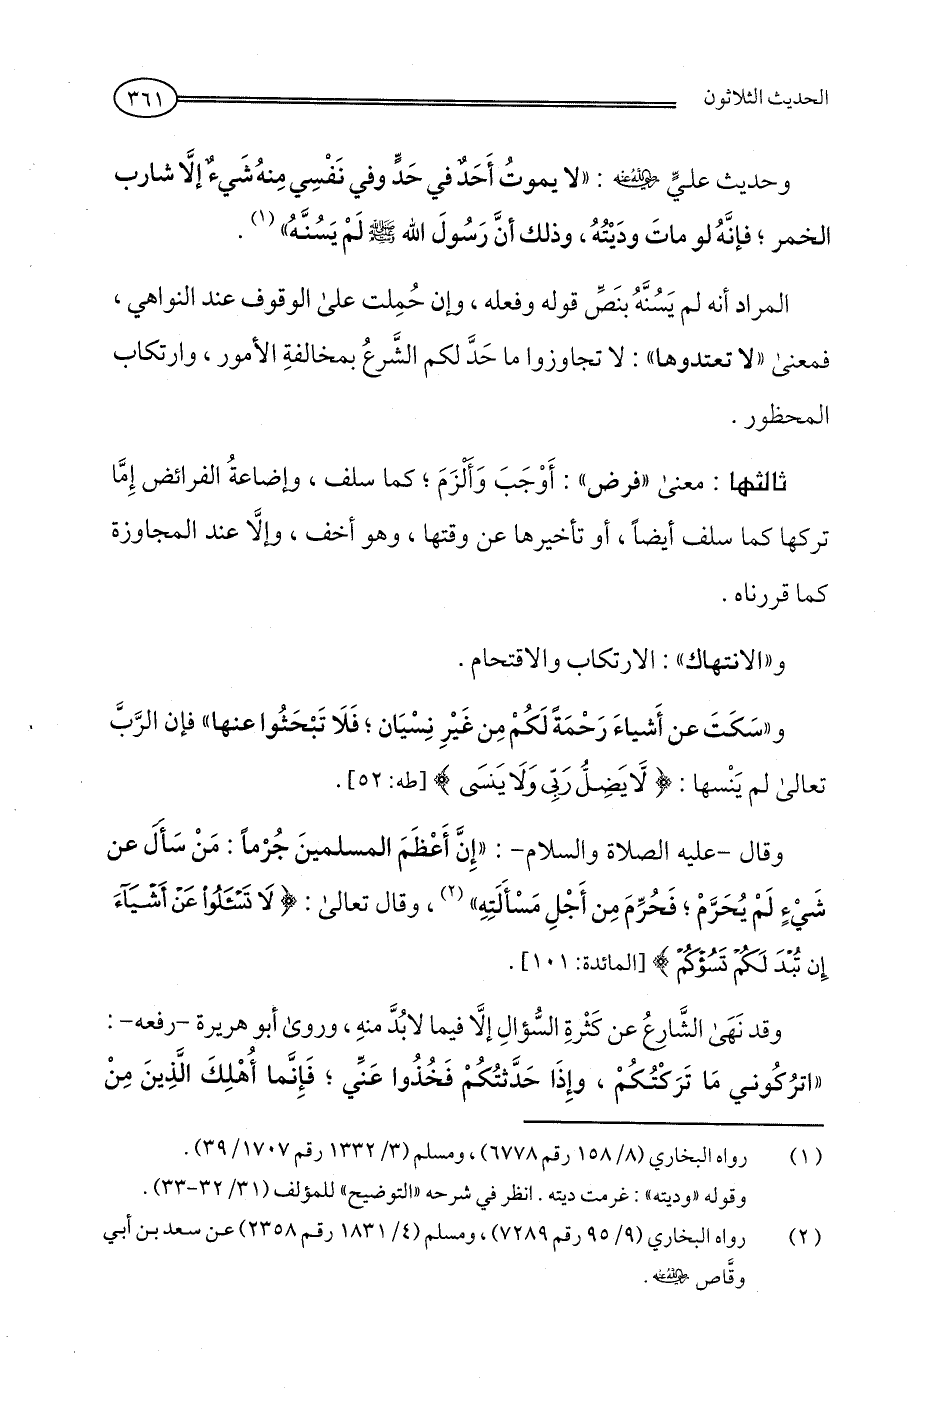 الحديث الثلاثون
٣٦١
وحديث عليٍّ رضي الله عنه : «لا يموتُ أَحَدٌ في حَدٍّ وفي نَفْسِي مِنهُ شَيءٌ إلَّا شارب
الخمر ؛ فإنَّهُ لو ماتَ ودَيْتُهُ ، وذلك أنَّ رَسُولَ الله ﷺ لَمْ يَسُنَّهُ» (١) .
المراد أنه لم يَسُنَّهُ بنَصِّ قوله وفعله ، وإن حُمِلت علىٰ الوقوف عند النواهي ،
فمعنىٰ «لا تعتدوها» : لا تجاوزوا ما حَدَّ لكم الشَّرعُ بمخالفةِ الأمور ، وارتكاب
المحظور .
ثالثها : معنىٰ «فرض» : أَوْجَبَ وَأَلْزَمَ ؛ كما سلف ، وإضاعةُ الفرائض إمَّا
تركها كما سلف أيضاً ، أو تأخيرها عن وقتها ، وهو أخف ، وإلَّا عند المجاوزة
كما قررناه .
و«الانتهاك» : الارتكاب والاقتحام .
و«سَكَتَ عن أشياءَ رَحْمَةً لَكُمْ مِن غَيْرِ نِسْيَان ؛ فَلَا تَبْحَثُوا عنها» فإن الرَّبَّ
تعالىٰ لم يَنْسها : ﴿ لَّا يَضِلُّ رَبِّى وَلَا يَنسَى ﴾ [طه: ٥٢] .
وقال -عليه الصلاة والسلام- : «إنَّ أَعْظَمَ المسلمينَ جُرْماً : مَنْ سَأَلَ عن
شَيْءٍ لَمْ يُحَرَّمْ ؛ فَحُرِّمَ مِن أَجْلِ مَسْأَلَتِهِ» (٢) ، وقال تعالىٰ : ﴿ لَا تَسْـَٔلُواْ عَنْ أَشْيَآءَ
إِن تُبْدَ لَكُمْ تَسُؤْكُمْ ﴾ [المائدة: ١٠١] .
وقد نَهَىٰ الشَّارعُ عن كَثْرةِ السُّؤالِ إلَّا فيما لابُدَّ منهِ ، وروىٰ أبو هريرة -رفعه- :
«اترُكُوني مَا تَرَكْتُكُمْ ، وإذَا حَدَّثتُكُمْ فَخُذُوا عَنِّي ؛ فَإنَّما أُهْلِكَ الَّذِينَ مِنْ
(١) رواه البخاري (٨/ ١٥٨ رقم ٦٧٧٨) ، ومسلم (٣/ ١٣٣٢ رقم ١٧٠٧/ ٣٩) .
وقوله «وديته» : غرمت ديته . انظر في شرحه «التوضيح» للمؤلف (٣١/ ٣٢-٣٣) .
(٢) رواه البخاري (٩/ ٩٥ رقم ٧٢٨٩) ، ومسلم (٤/ ١٨٣١ رقم ٢٣٥٨) عن سعد بن أبي
وقَّاص رضي الله عنه .